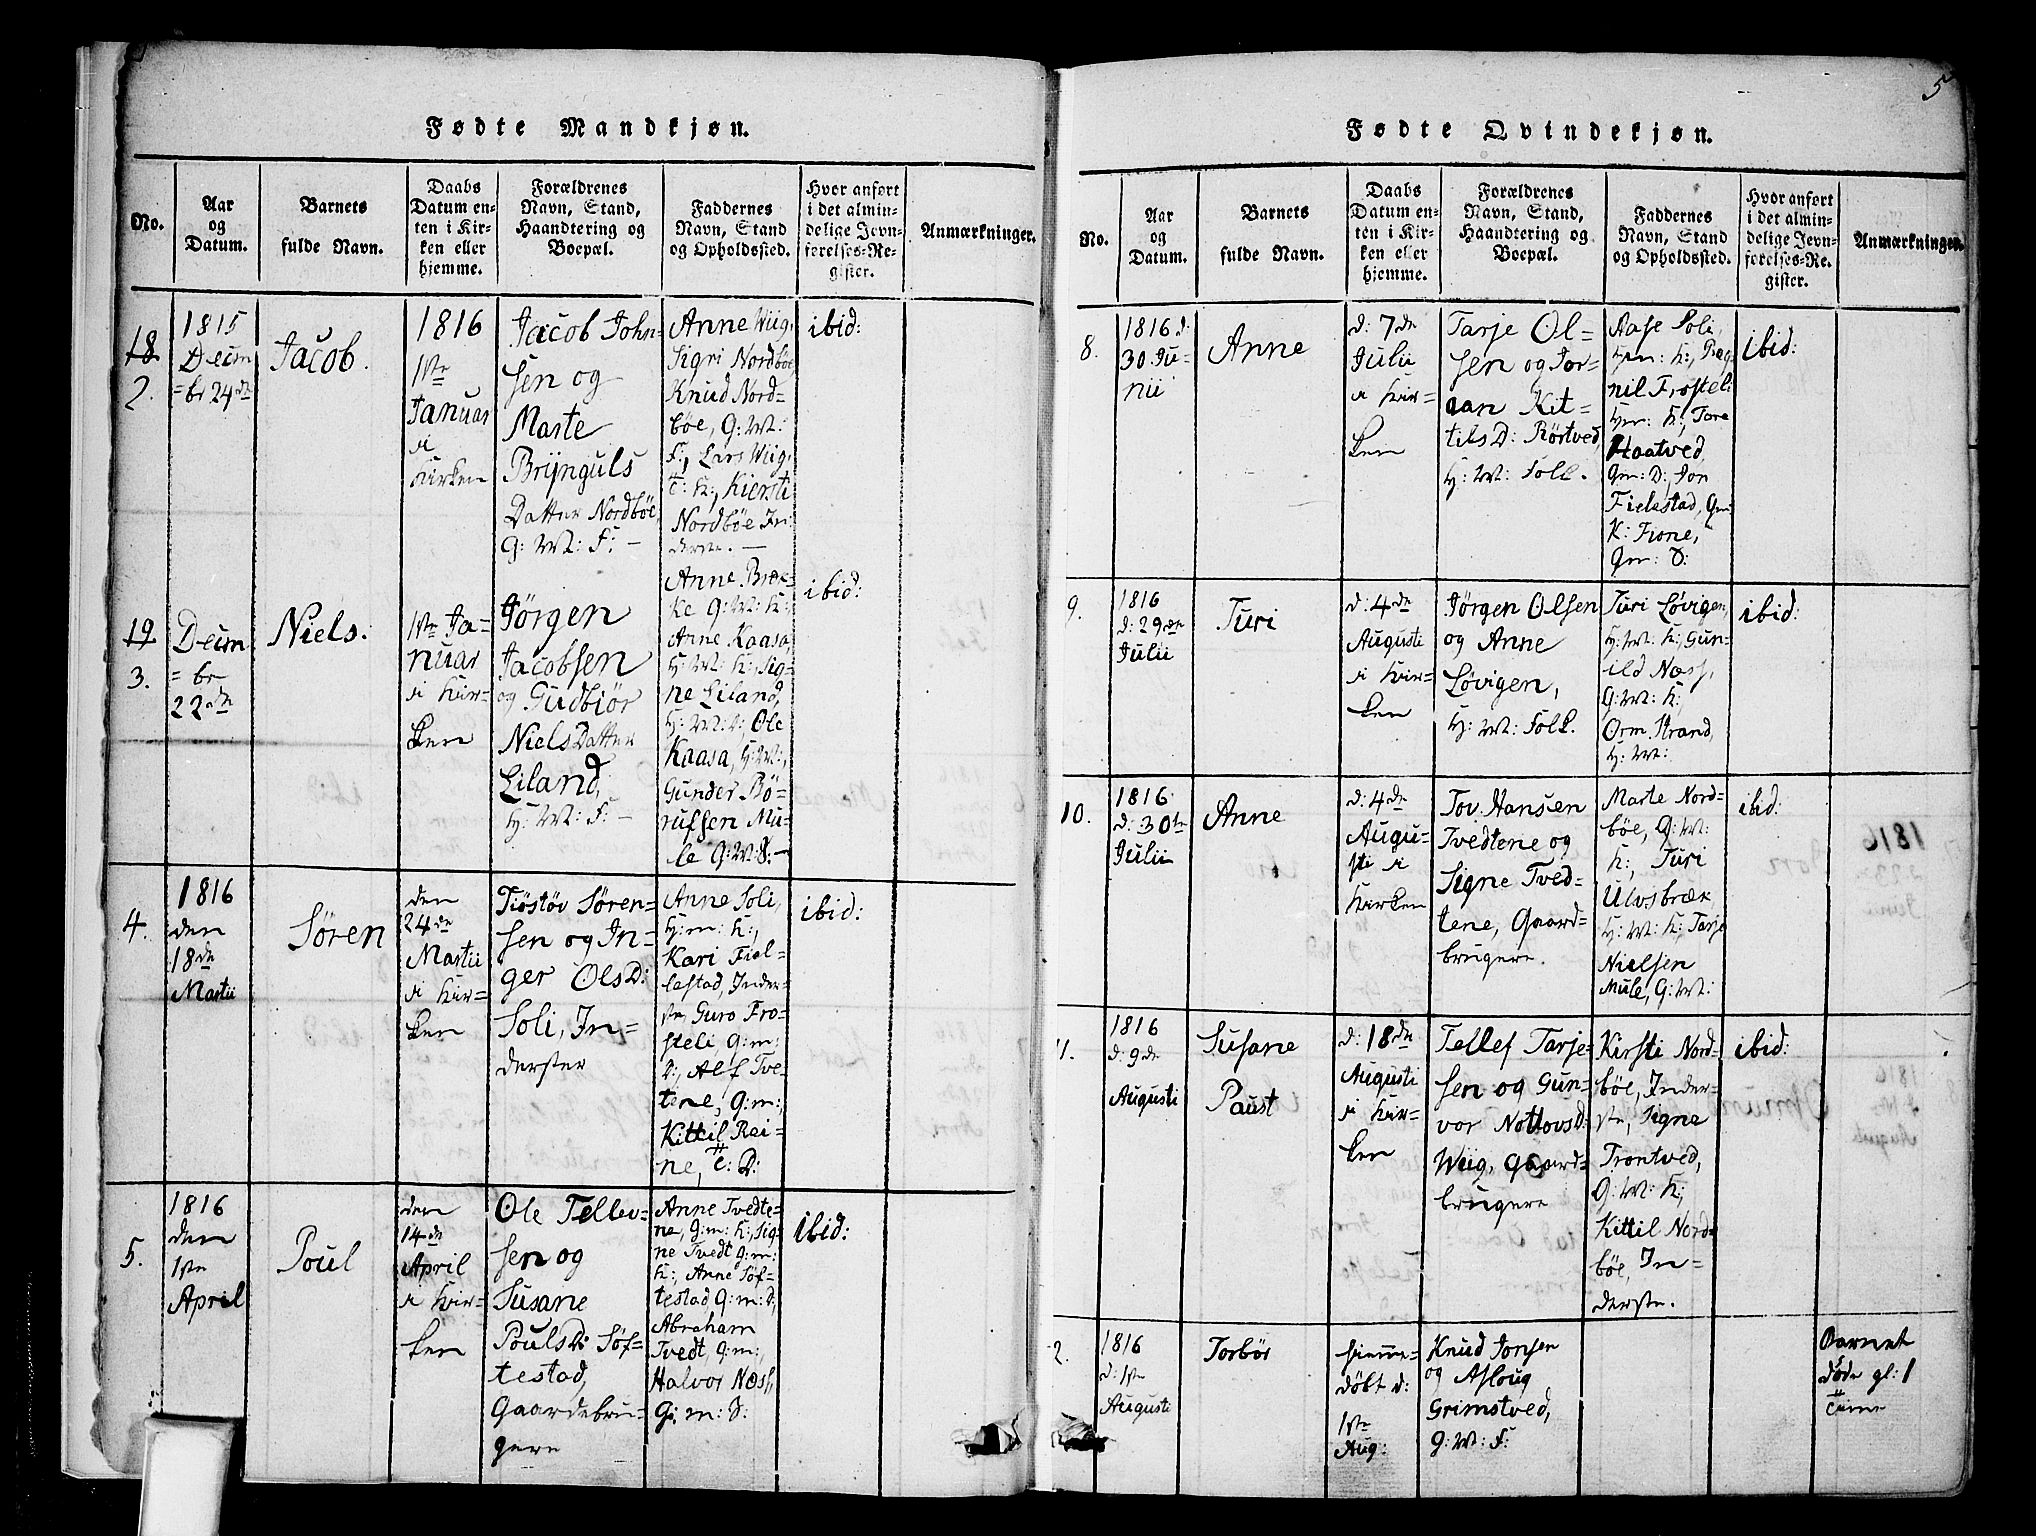 Fødte Mandkjøn.
No.
Aar
og
Datum.
Barnets
fulde Navn.
Daabs
Datum en-
ten i Kir-
ken eller
hjemme.
Forældrenes
Navn, Stand,
Haandtering og
Boepæl.
Faddernes
Navn, Stand
og Opholdssted.
Hvor anført
i det almin-
delige Jevn-
førelses-Re-
gister.
Anmærkninger.
18
2.
1815
Decm
=br 24de
Jacob.
1816
1ste
Januar
i
Kirken
Jacob John-
sen og
Marte
Brÿnguls
Datter Nordböe,
G: M: F: —
Anne Wiig,
Sigri Nordböe
Knud Nord-
böe, G: M:
F:, Lars Wiig,
Kiersti
Nordböe In
derste. —
ibid:
19
3.
Decm
=br
22de
Niels.
1ste Ja-
nuar
i Kir-
ken
Jörgen
Jacobsen
og Gudbiör
Niels Datter
Liland,
H: M: F: —
Anne Bræk-
ke G: M: K:,
Anne Kaasa,
H: M: K:, Sig-
ne Liland,
H: M: D: Ole
Kaasa, H: M:,
Gunder Bö-
rufsen Mu-
le G: M: S: —
ibid:
4.
1816
den
18de
Martii
Sören
den
24de
Martii
i Kir-
ken
Tiöstöv Sören-
sen og In-
ger OlsD:
Soli, In-
derster
Anne Soli,
H: m: K:,
Kari Fiel-
lestad, Inder-
ste, Guro Fro-
steli, G: m:
D:, Alf Tve-
tene, G: m:,
Kittil Rei-
ne, T: D:
ibid:
5.
1816
den
1ste
April
Poul
den
14de
April
i Kir-
ken
Ole Tellev-
sen og
Susane
PoulsD: Söf-
testad,
Gaardebru-
gere
Anne Tvedte-
ne, G: m: K:, Sig-
ne Tvedt G: m:
K:, Anne Söf-
testad, G: m: D:,
Abraham
Tvedt, G: m:,
Halvor Næss,
G: m: S:
ibid:
5
Fødte Qvindekjøn.
No.
Aar
og
Datum.
Barnets
fulde Navn.
Daabs
Datum en-
ten i Kir-
ken eller
hjemme.
Forældrenes
Navn, Stand,
Haandtering og
Boepæl.
Faddernes
Navn, Stand
og Opholdssted.
Hvor anført
i det almin-
delige Jevn-
førelses-Re-
gister.
Anmærkninger.
8.
1816 d:
30 Ju-
nii
Anne
d: 7de
Julii
i Kir-
ken
Tarje Ol-
sen og Jor-
aan Kit-
tilsD: Rörtved,
H: M: Folk.
Aase Soli,
Hm: K:, Rag-
nil Frosteli
Hm: K:, Tara
Haatved,
Gm: D:, Jon
Fielestad, Gm
K: Fione,
Gm: S:
ibid:
9.
1816
d: 29de
Julii
Turi
d: 4de
Augusti
i Kir-
ken
Jörgen Olsen
og Anne
Lövigen,
H: M: Folk.
Turi Lövigen,
H: M: K:, Gun-
ild Næss,
G: M: K:
Orm Strand,
H: M:
ibid:
10.
1816
d: 30te
Julii
Anne
d: 4de
Augu-
sti i
Kirken
Tov. Hansen
Tvedtene og
Signe Tved-
tene, Gaard-
brugere.
Marte Nord-
böe, G: M:
K:, Turi
Ulvsbræk
H: M: K: Tarje
Nielsen
Mule, G: M:
ibid:
11.
1816
d: 9de
Augusti
Susane
Paust
d: 18de
Augusti
i Kir-
ken
Tellef Tarje-
sen og Gun-
vor NottovsD:
Wiig, Gaard-
brugere
Kirsti Nord-
böe, Inder-
ste, Signe
Trontved,
G: M: K:,
Kittil Nord-
böe, In-
derste.
ibid:
2.
1816
d: 1ste
Augusti
Torbör
hiemme-
döbt d:
1ste
Aug:
Knud Jonsen
og Asloug
Grimstved,
G: M: F:
Barnet
döde gl: 1
Time